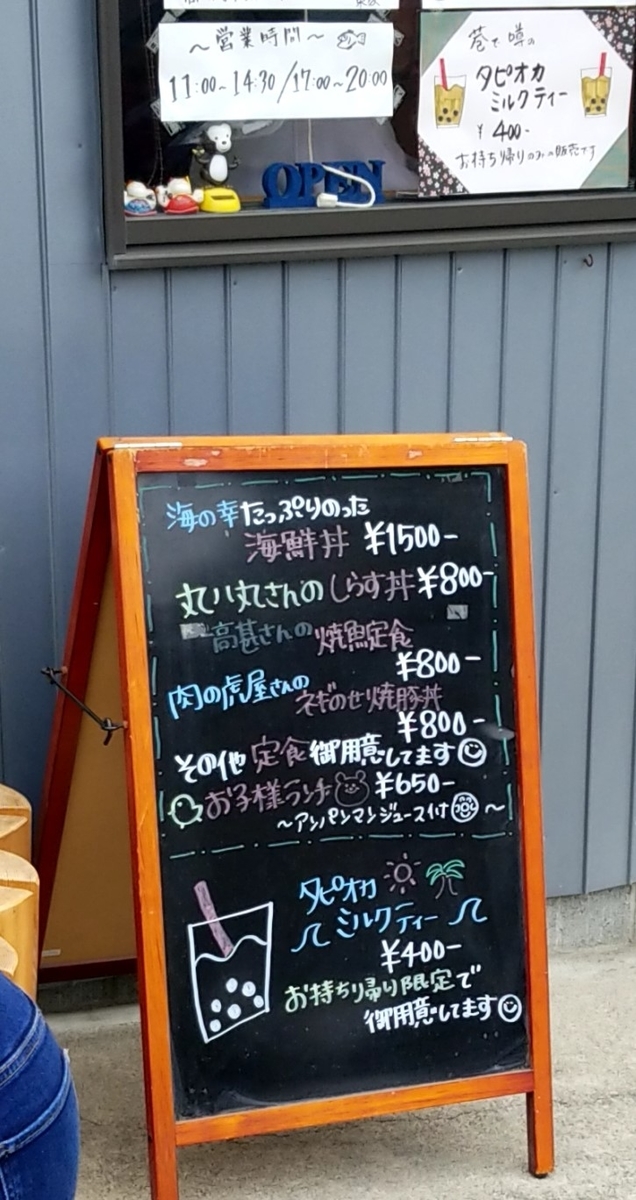 ～営業時間～
11:00~14:30/17:00~20:00
巷で噂の
タピオカ
ミルクティー
¥400-
お持ち帰りのみの販売です
OPEN
海の幸たっぷりのった
海鮮丼 ¥1500-
丸八丸さんのしらす丼¥800-
高甚さんの焼魚定食
¥800-
肉の虎屋さんの
ネギのせ焼豚丼
¥800-
その他 定食御用意してます
お子様ランチ ¥650-
～アンパンマンジュース付～
タピオカ
ミルクティー
¥400-
お持ち帰り限定で
御用意してます